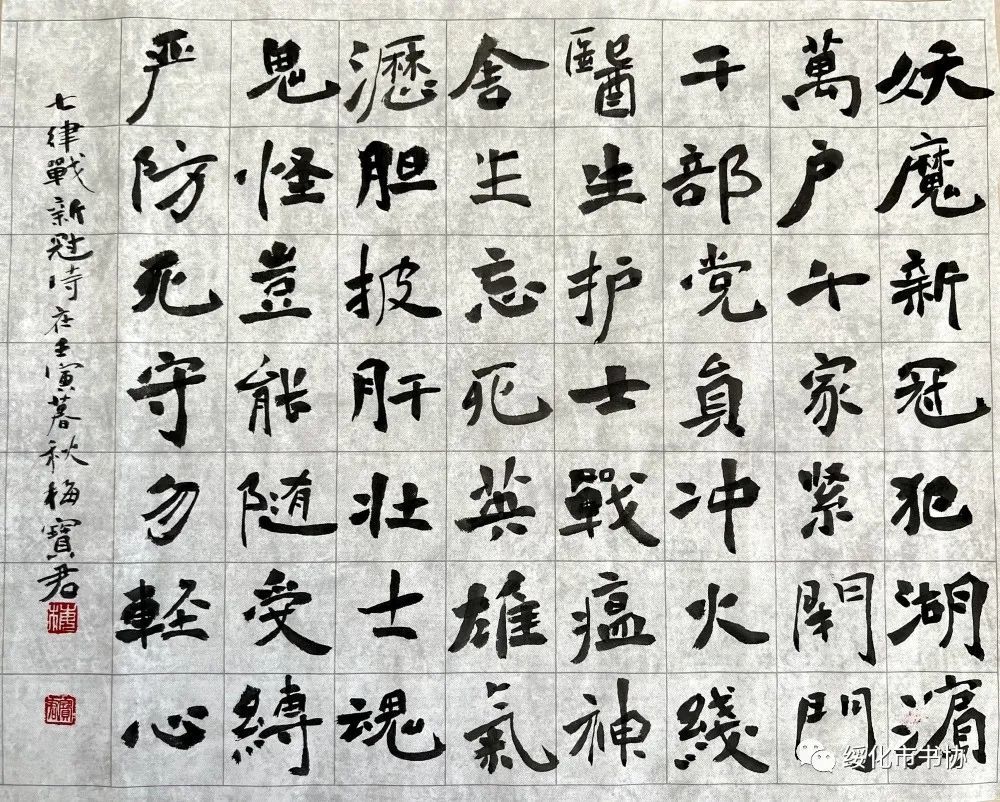 妖魔新冠犯湖濵
萬户千家紧閇門
干部党員冲火綫
醫生护士戰瘟神
舍生忘死英雄氣
瀝胆披肝壮士魂
鬼怪豈能随受縛
严防死守勿輕心
七律戰新冠诗在壬寅暮秋梅寶君
绥化市书协